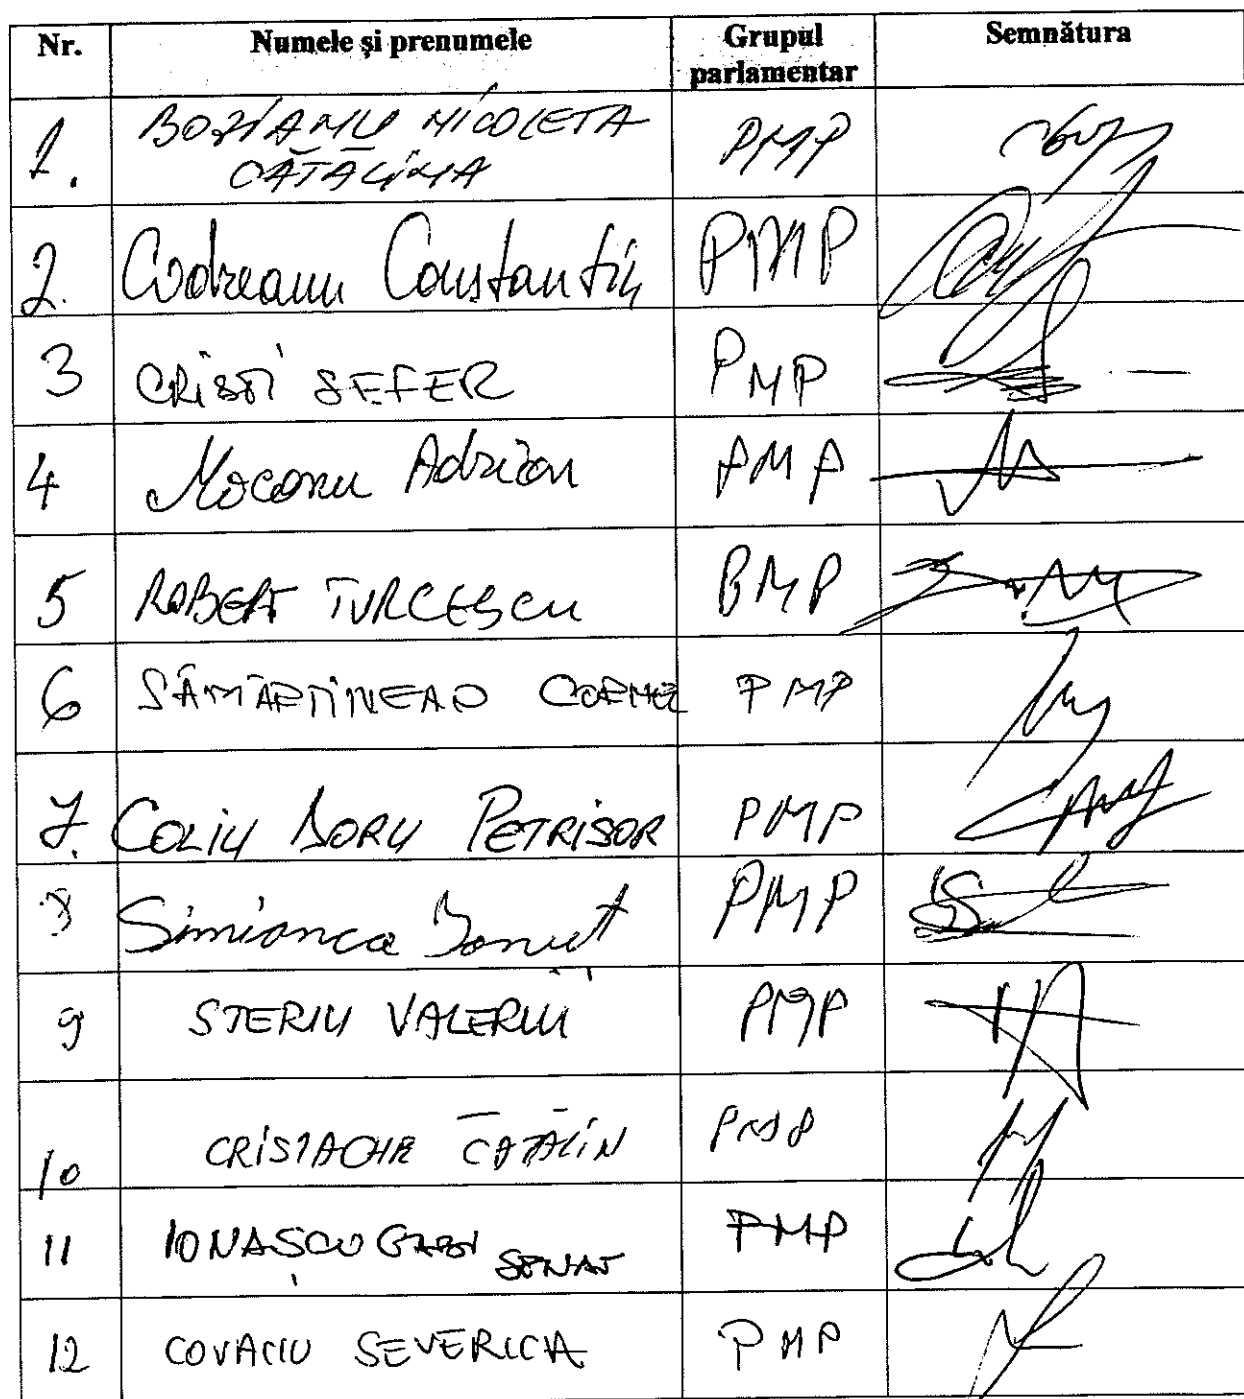 Nr. Numele și prenumele Grupul parlamentar Semnătura
1. BOZIANU NICOLETA CĂTĂLINA PMP
2. Codreanu Constantin PMP
3 CRISTI SEFER PMP
4 Mocanu Adrian PMP
5 ROBERT TURCESCU PMP
6 SÂMĂRTINEAN CORNEL PMP
7. COLIU DORU PETRISOR PMP
8 Simionca Ionuț PMP
9 STERIU VALERIU PMP
10 CRISTACHE CĂTĂLIN PMP
11 IONAȘCU GABI SENAT PMP
12 COVACIU SEVERICA PMP